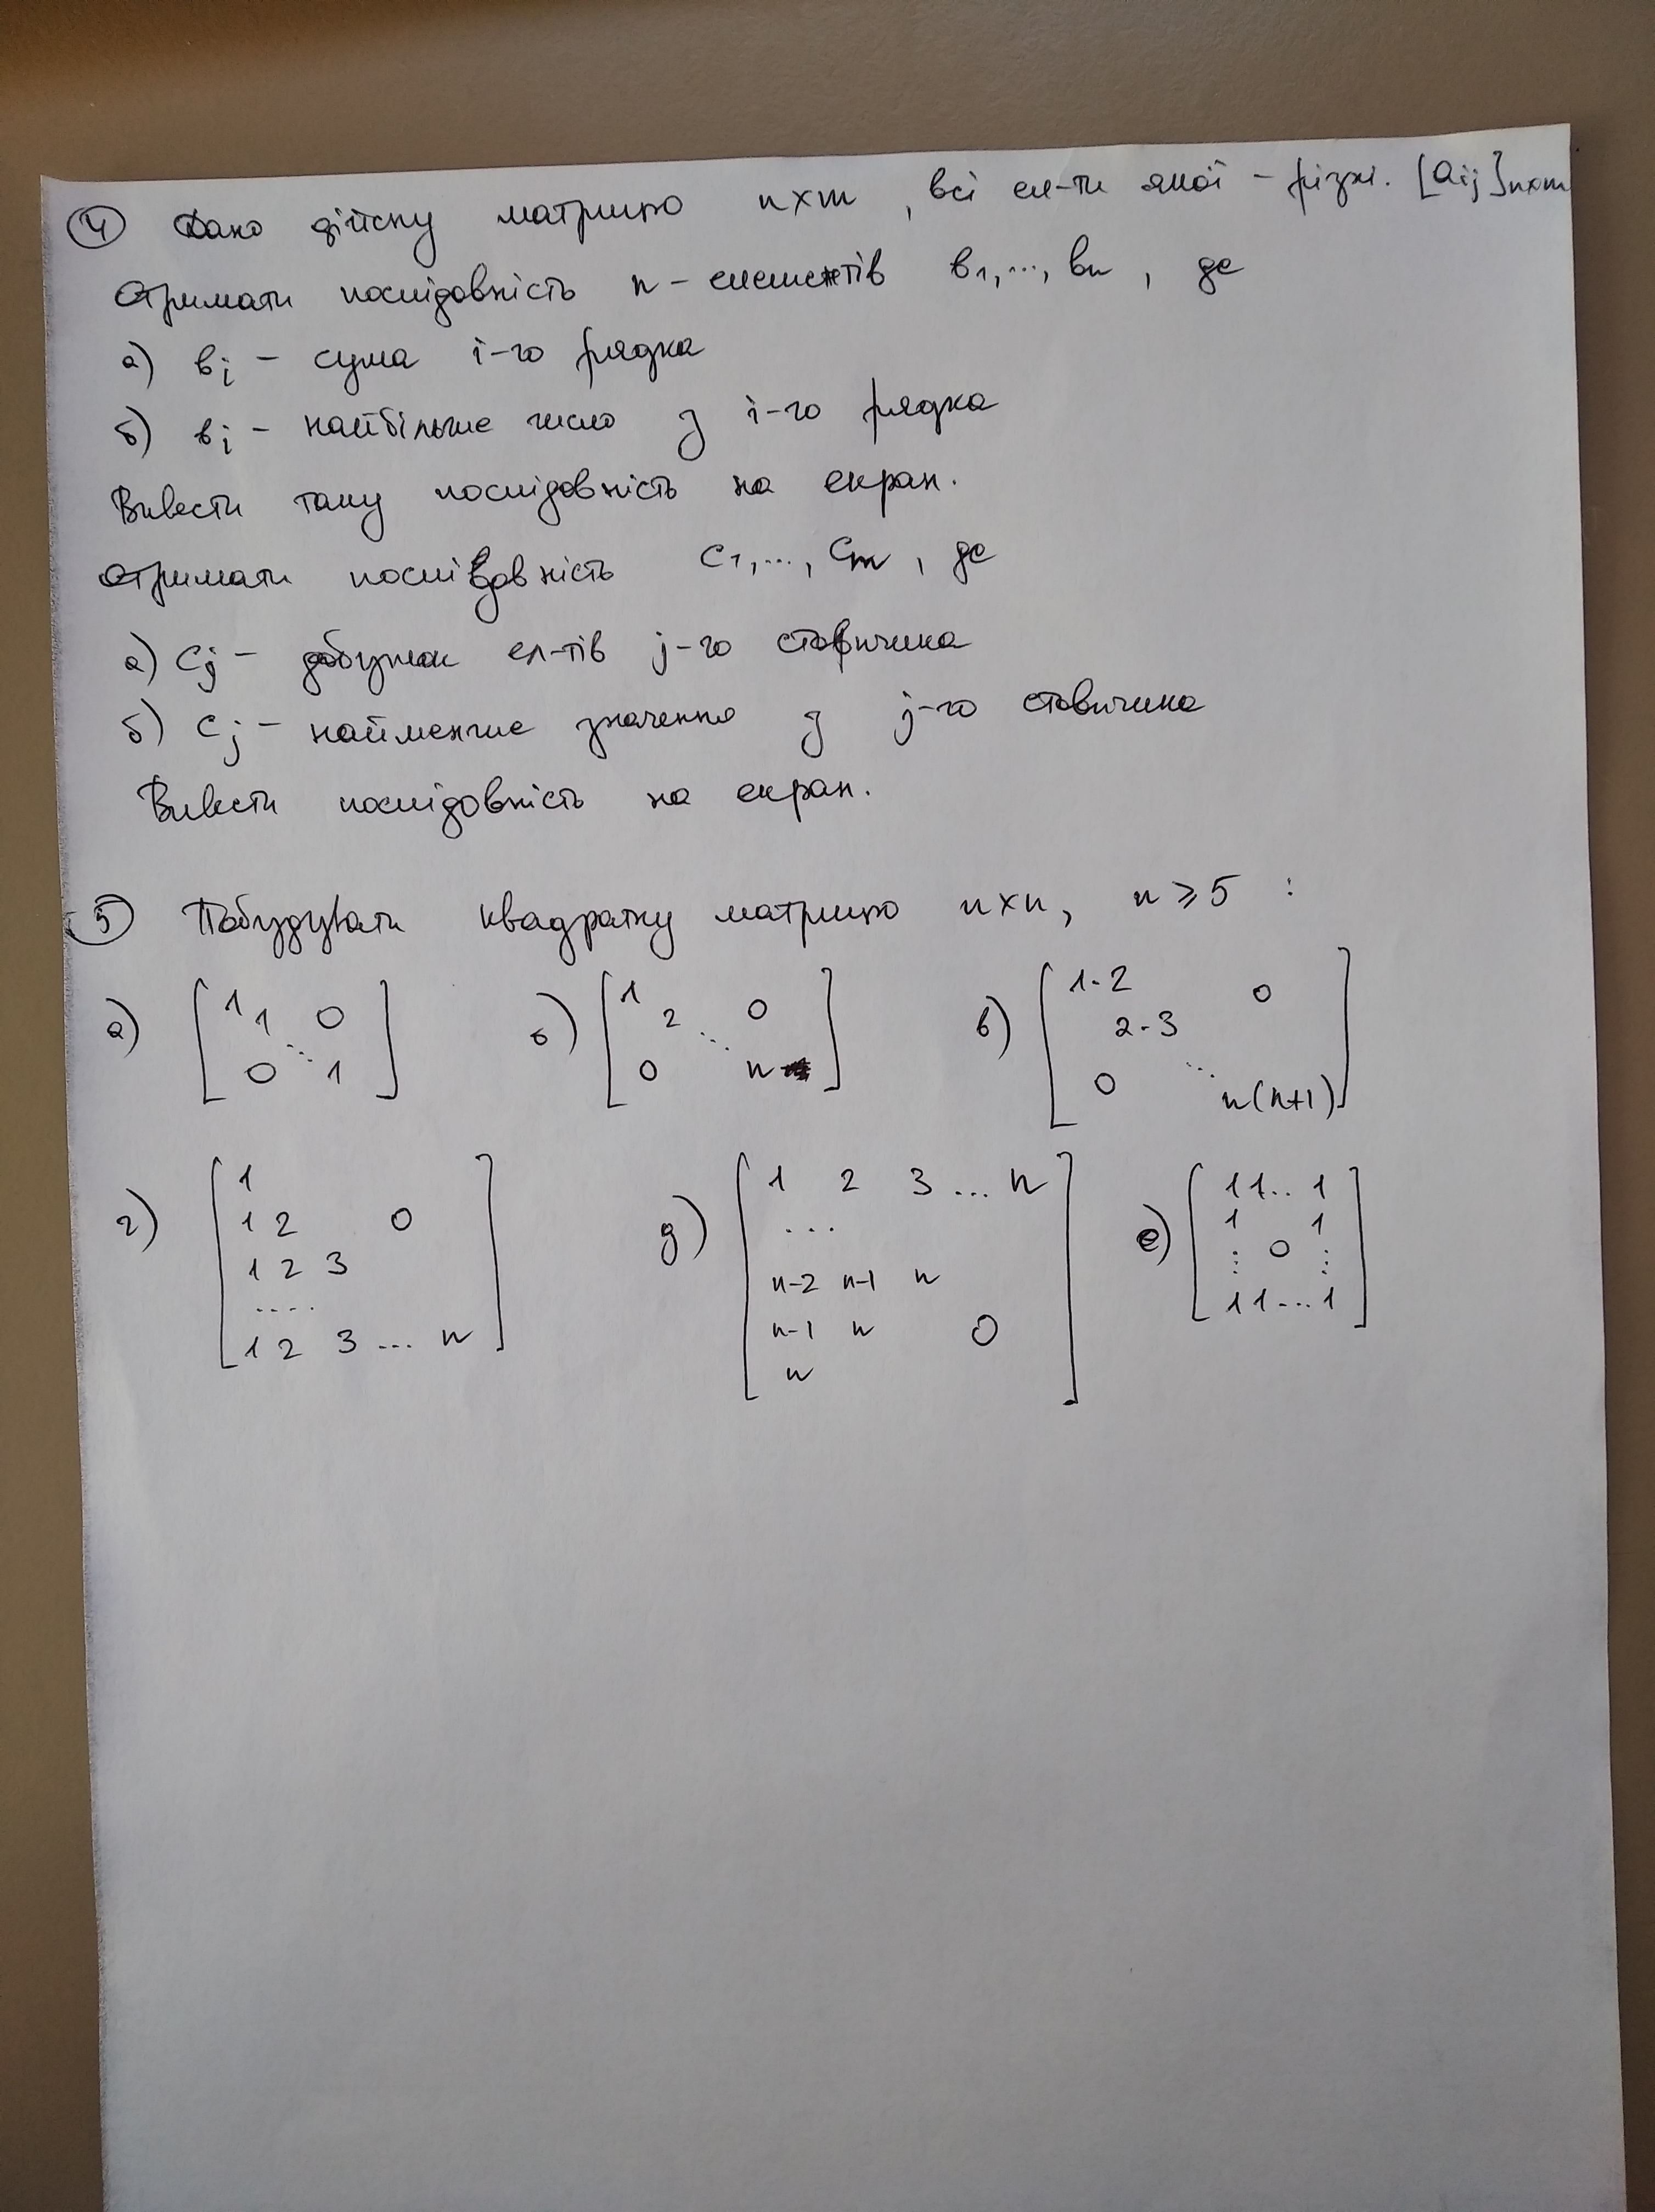 ④ Дано дійсну матрицю n×m, всі ел-ти якої – різні. [aij]n×m
Отримати послідовність n – елементів b1,..., bn, де
а) bi – сума i-го рядка
б) bi – найбільше число з i-го рядка
Вивести таку послідовність на екран.
Отримати послідовність c1,..., cm, де
а) cj – добуток ел-тів j-го стовпчика
б) cj – найменше значення з j-го стовпчика
Вивести послідовність на екран.
⑤ Побудувати квадратну матрицю n×n, n ≥ 5 :
а) [1 1 0 ... 0 1]
б) [1 2 0 ... 0 n]
в) [1·2 0 2·3 ... 0 n(n+1)]
г) [1
1 2 0
1 2 3
....
1 2 3 ... n]
д) [1 2 3 ... n
...
n-2 n-1 n
n-1 n 0
n]
е) [1 1 .. 1
1 1
⋮ 0 ⋮
1 1 ... 1]